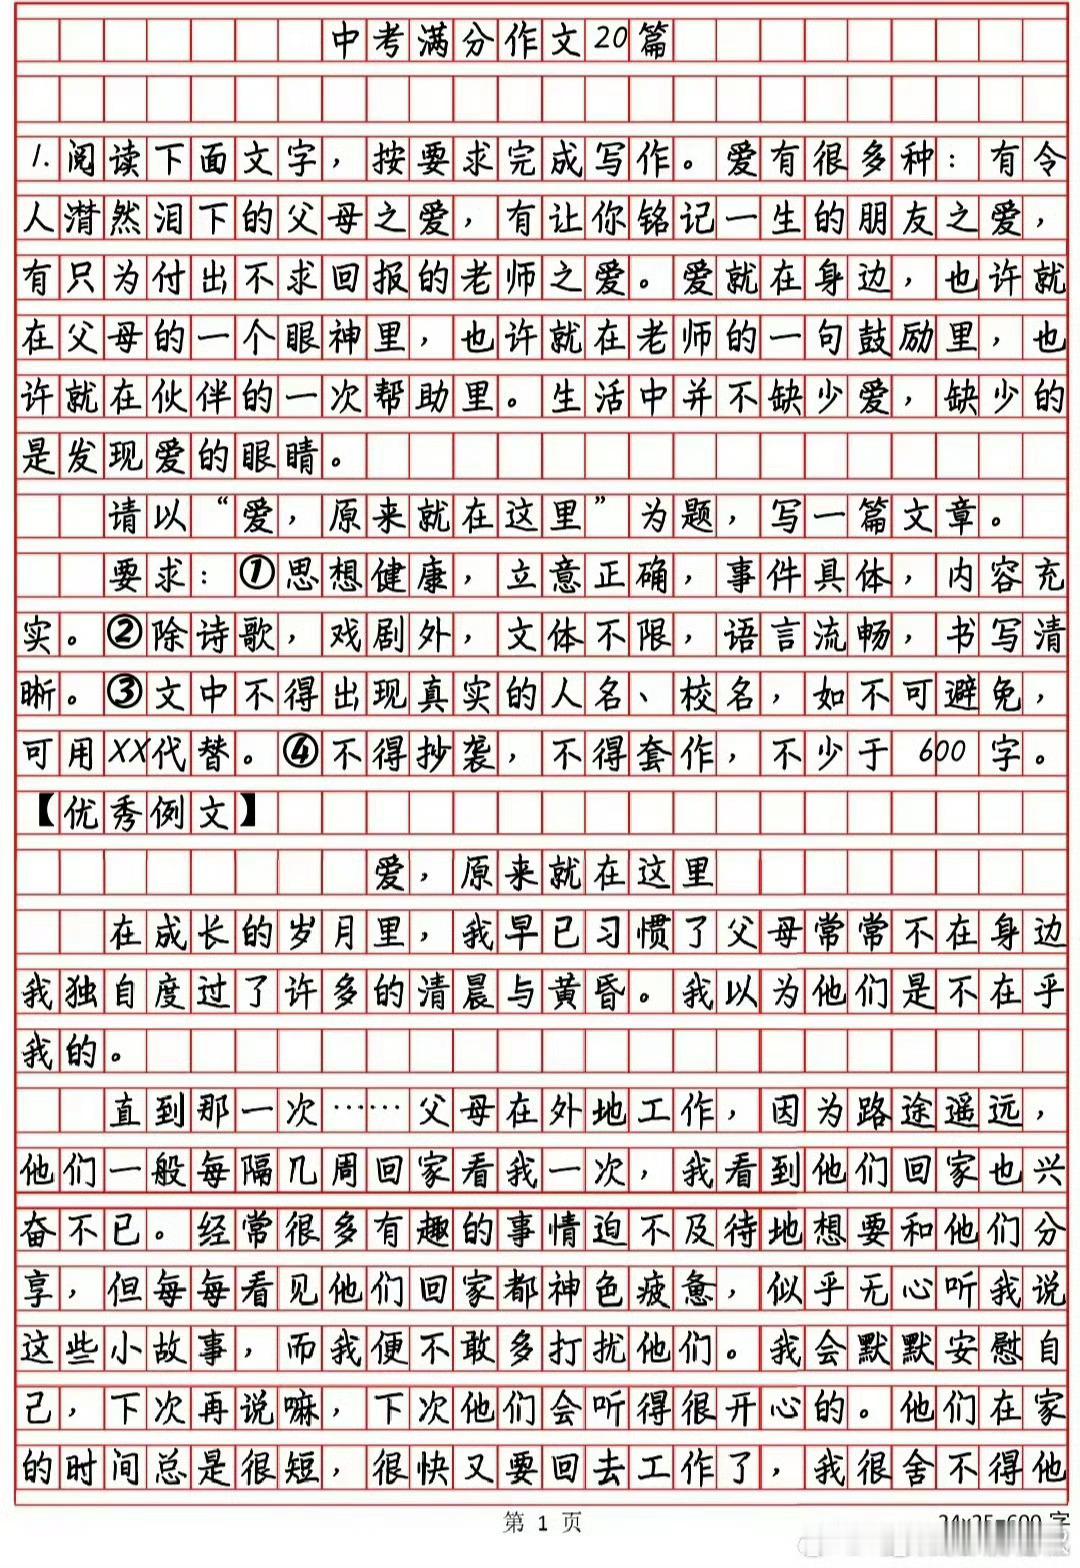 中考满分作文20篇
1.阅读下面文字，按要求完成写作。爱有很多种：有令
人潸然泪下的父母之爱，有让你铭记一生的朋友之爱，
有只为付出不求回报的老师之爱。爱就在身边，也许就
在父母的一个眼神里，也许就在老师的一句鼓励里，也
许就在伙伴的一次帮助里。生活中并不缺少爱，缺少的
是发现爱的眼睛。
请以“爱，原来就在这里”为题，写一篇文章。
要求：①思想健康，立意正确，事件具体，内容充
实。②除诗歌，戏剧外，文体不限，语言流畅，书写清
晰。③文中不得出现真实的人名、校名，如不可避免，
可用XX代替。④不得抄袭，不得套作，不少于600字。
【优秀例文】
爱，原来就在这里
在成长的岁月里，我早已习惯了父母常常不在身边
我独自度过了许多的清晨与黄昏。我以为他们是不在乎
我的。
直到那一次……父母在外地工作，因为路途遥远，
他们一般每隔几周回家看我一次，我看到他们回家也兴
奋不已。经常很多有趣的事情迫不及待地想要和他们分
享，但每每看见他们回家都神色疲惫，似乎无心听我说
这些小故事，而我便不敢多打扰他们。我会默默安慰自
己，下次再说嘛，下次他们会听得很开心的。他们在家
的时间总是很短，很快又要回去工作了，我很舍不得他
第 1 页
24x25=600 字